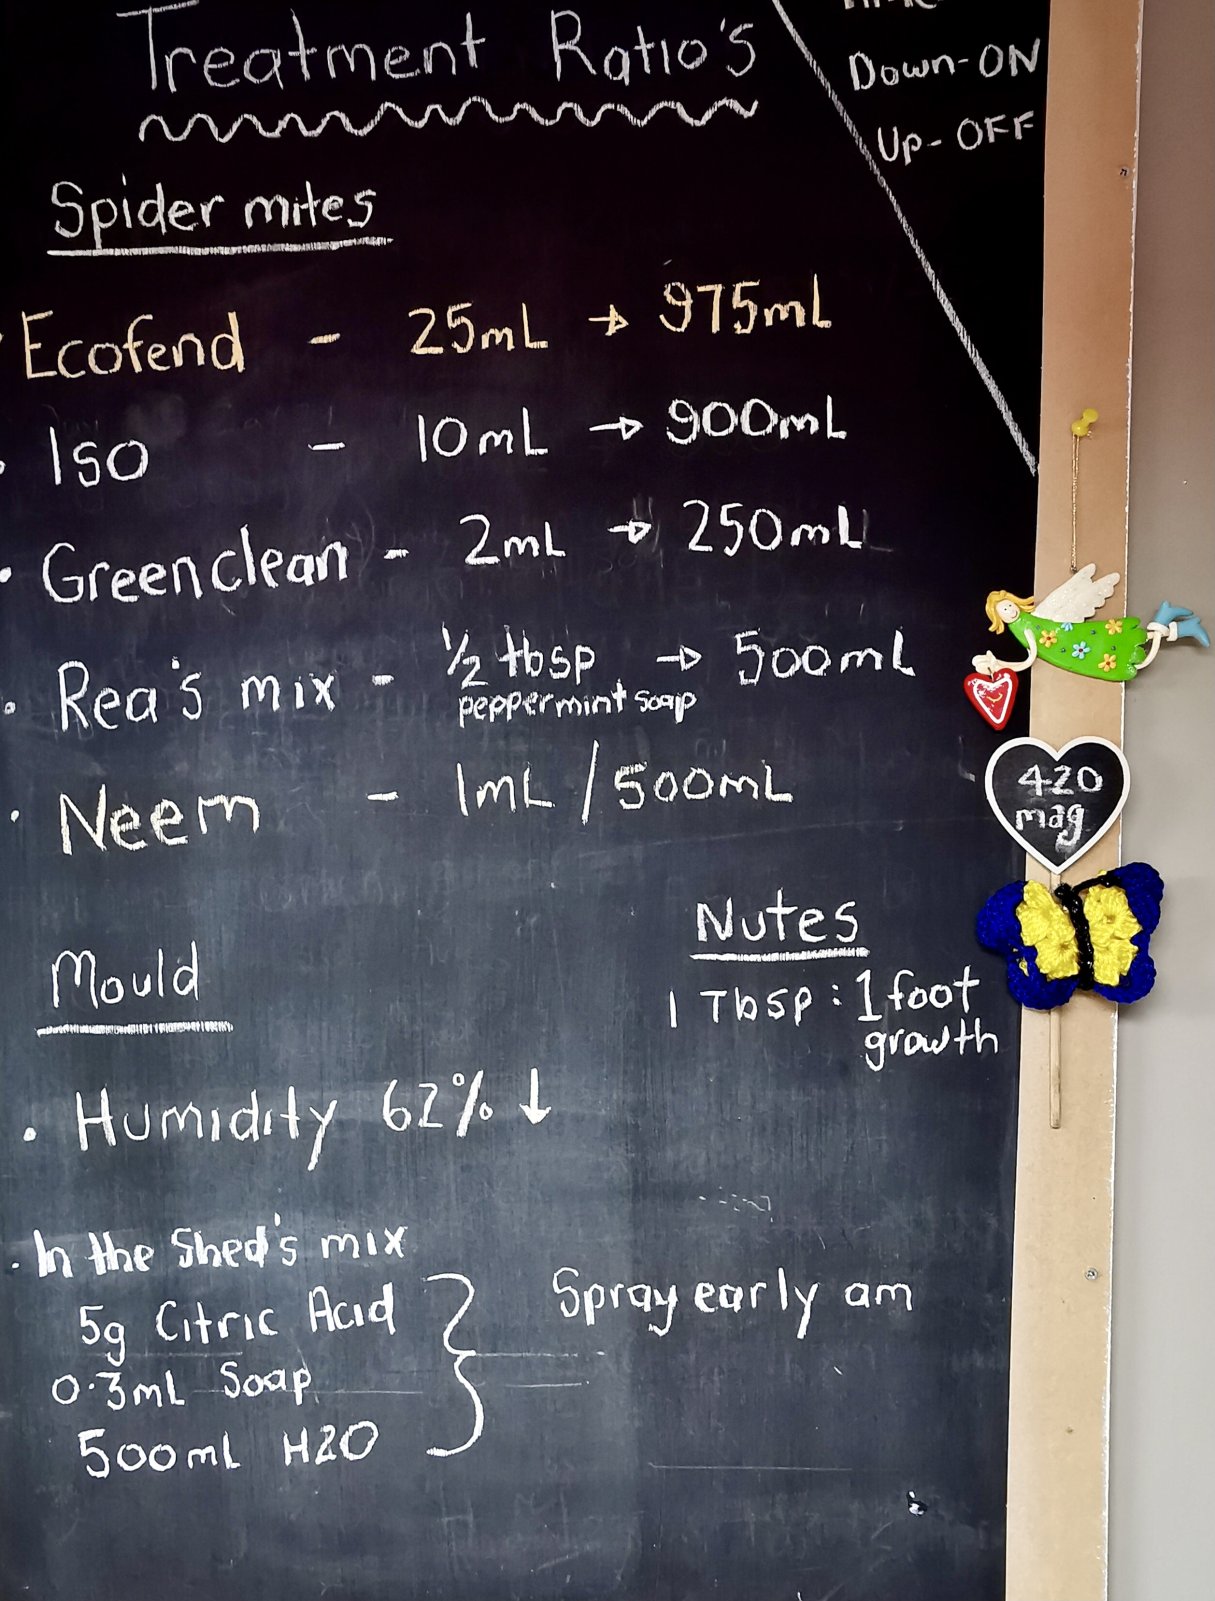 Treatment Ratio's
Down-ON
Up-OFF
Spider mites
Ecofend - 25mL → 975mL
• Iso - 10mL → 900mL
• Greenclean - 2mL → 250mL
• Rea's mix - 1/2 tbsp → 500mL
peppermint soap
• Neem - 1mL / 500mL
420
mag
Nutes
1 Tbsp : 1 foot
growth
Mould
• Humidity 62% ↓
• In the Shed's mix
5g Citric Acid
0.3mL Soap
500mL H2O
Spray early am